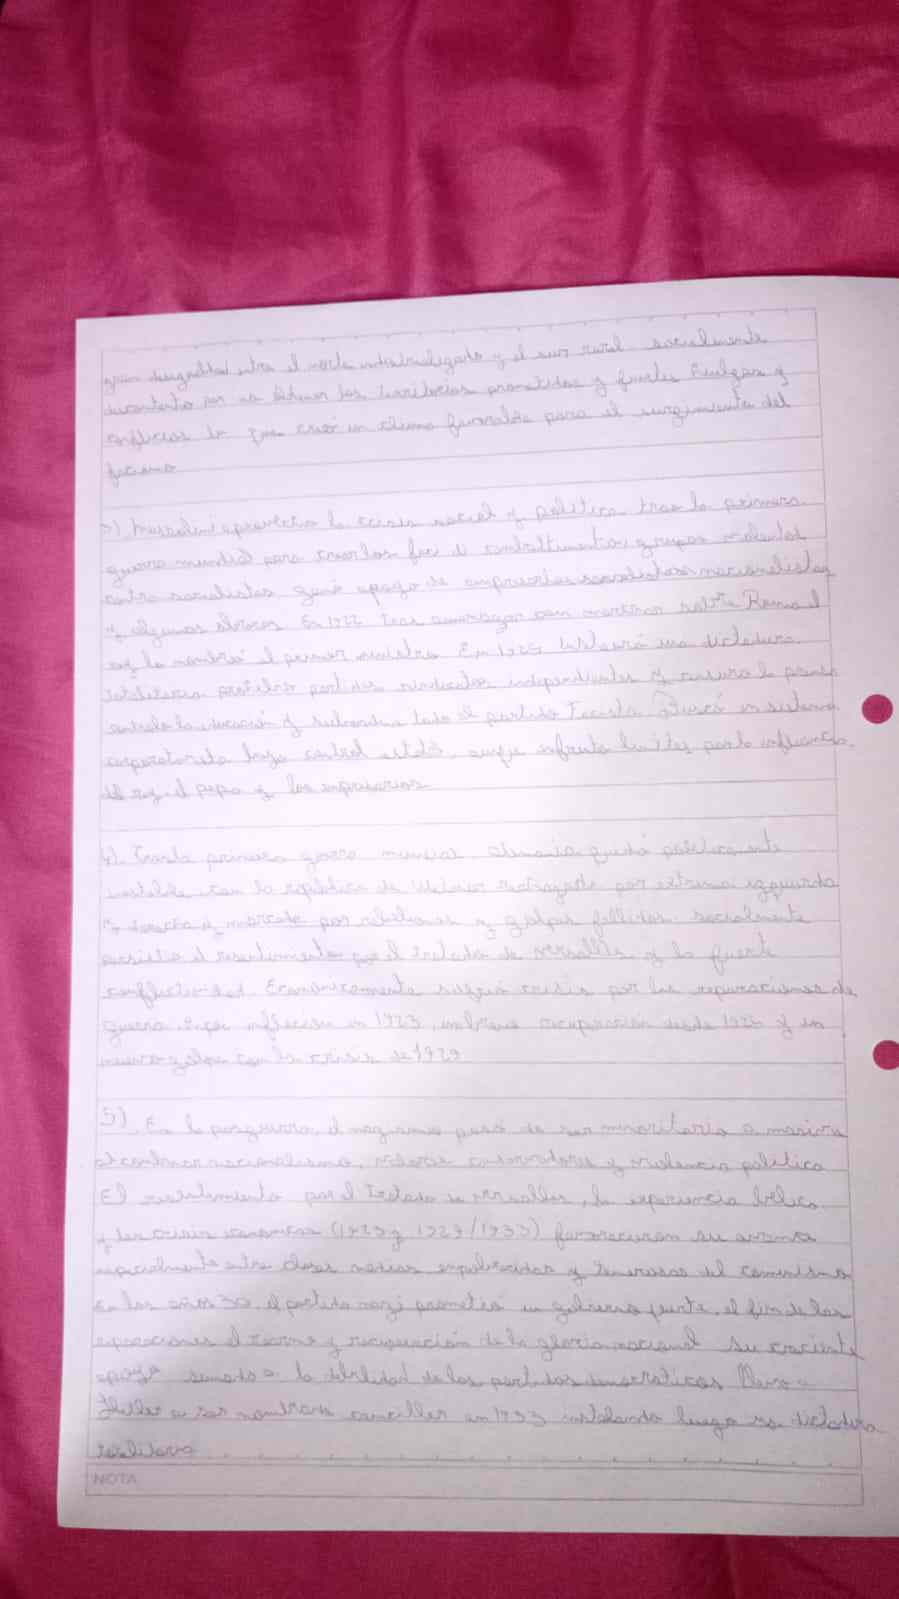 gran desigualdad entre el norte industrializado y el sur rural socialmente
descontento por no obtener los territorios prometidos y fuertes huelgas y
conflictos lo que creó un clima favorable para el surgimiento del
fascismo
3) Mussolini aprovechó la crisis social y política tras la primera
guerra mundial para crear los fasci di combattimento, grupos violentos
contra socialistas ganó apoyo de empresarios nacionalistas
y algunos obreros. En 1922 tras amenazar con marchar sobre Roma el
rey lo nombró el primer ministro. En 1925 instauró una dictadura
totalitaria prohibió partidos, sindicatos independientes y censuró la prensa
controló la educación y subordinó todo al partido Fascista. Buscó un sistema
corporativista bajo control, aunque enfrentó límites por la influencia
del rey, el papa y los empresarios
4). Tras la primera guerra mundial, Alemania quedó politicamente
inestable con la república de Weimar rechazada por extrema izquierda
y derecha y marcada por rebeliones y golpes fallidos. socialmente
persistió el resentimiento por el tratado de versalles y la fuerte
conflictividad. Económicamente sufrió crisis por las reparaciones de
guerra, inflación en 1923, una breve recuperación desde y un
nuevo golpe con la crisis de 1929
5). En la posguerra, el nazismo pasó de ser minoritario a masivo
al combinar nacionalismo, valores conservadores y violencia política
El resentimiento por el Tratado de versalles, la experiencia bélica
y las crisis (1923 y 1929/1933) favorecieron su avance
especialmente entre clases medias empobrecidas y temerosas del comunismo
En los años 30, el partido nazi prometió un gobierno fuerte, el fin de las
reparaciones y recuperación de la gloria nacional su creciente
apoyo sumado a la debilidad de los partidos democraticos llevó a
Hitler a ser nombrado canciller en 1933 instalando luego una dictadura
totalitaria
NOTA